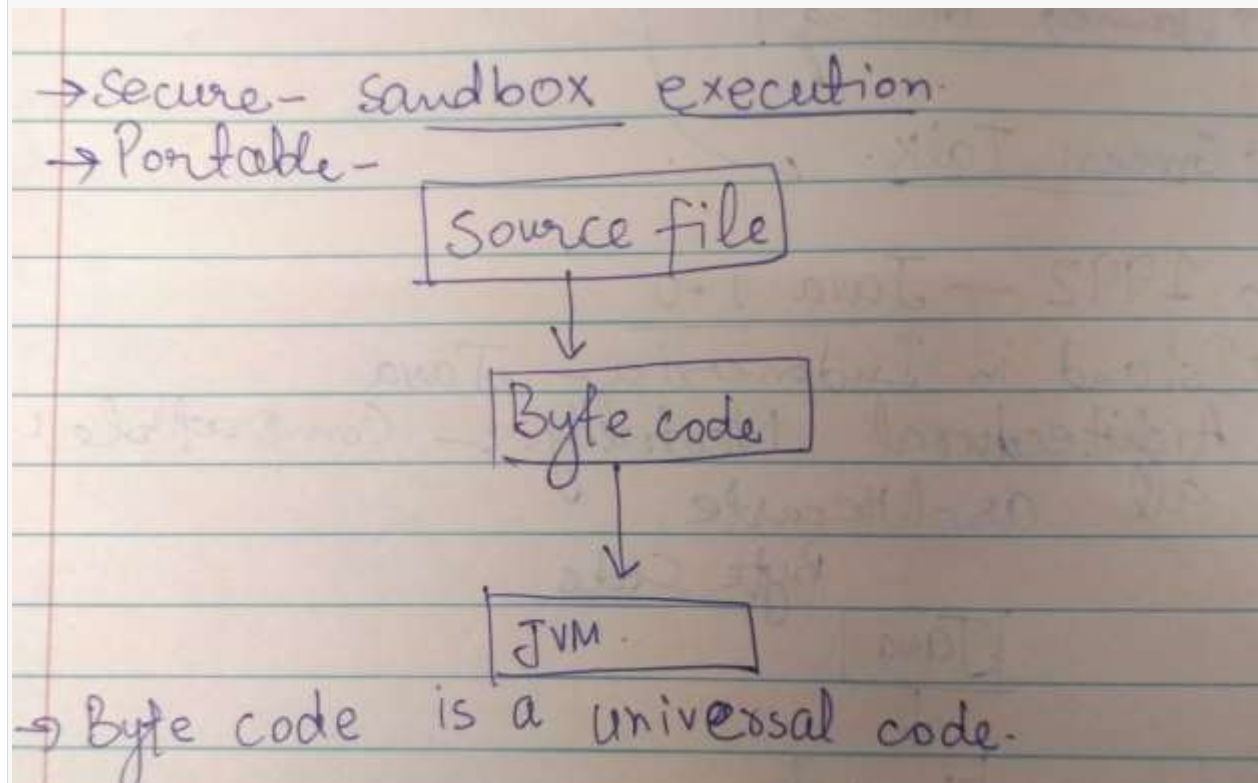 → Secure - sandbox execution.
→ Portable -
Source file
Byte code
JVM.
→ Byte code is a universal code.